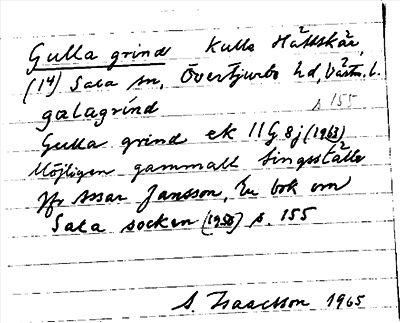 Gulla grind Kulla Hättskär,
(14) Sala sn, Övertjurbo hd, Västm. l.
galagrind s 155
Gulla grind ek 11G8j (1963)
Möjligen gammalt tingsställe
Jfr Assar Jansson, En bok om
Sala socken (1958) s. 155
S. Isaacsson 1965